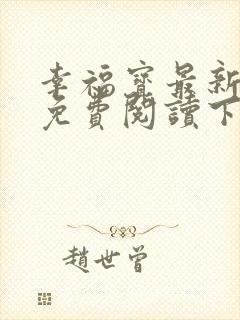 幸福寶最新
免費閱讀下
趙世曾